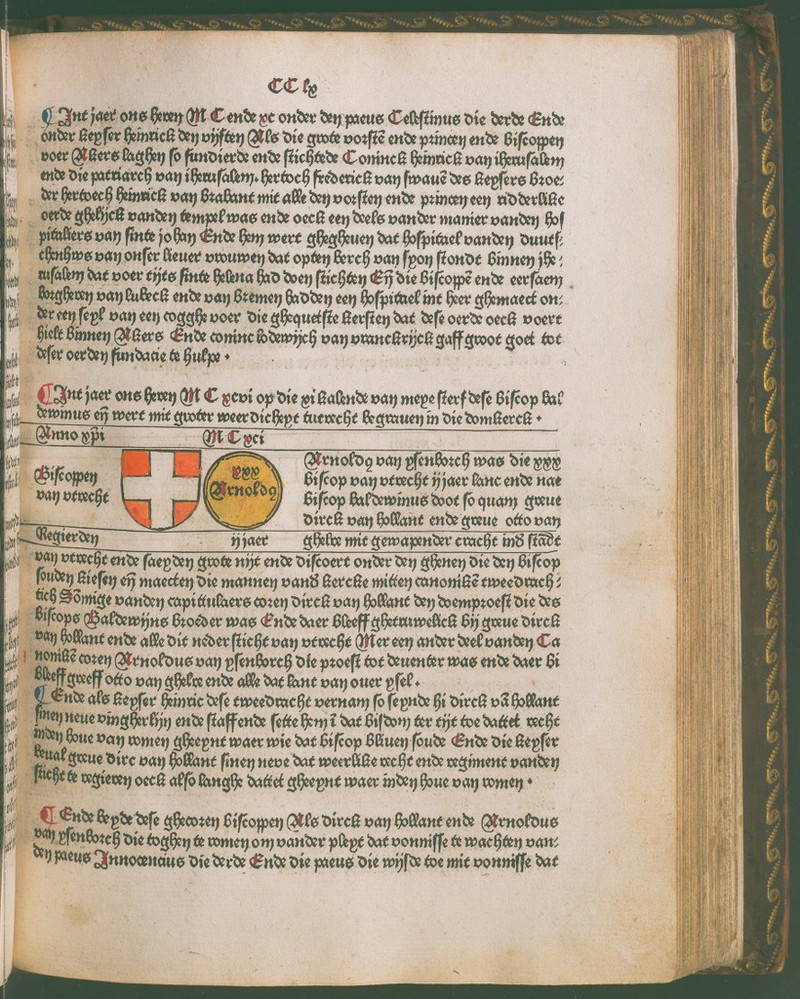 CC lx
¶ Int jaer ons heren M C ende xc onder den paeus Celestinus die derde Ende
onder keyser heinrick den vijften Als die grote vorstē ende princen ende biscoppen
voer Akers laghen so fundierde ende stichtede Coninck heinrick van iherusalem
ende die patriarch van iherusalem. hertoch frederick van swauē des keysers broe⸗
der hertoech heinrick van Brabant mit alle den vorsten ende princen een ridderlike
oerde ghelijck vanden tempel was ende oeck een deels vander manier vanden hos
pitaliers van sinte johan Ende hem wert ghegheuen dat hospitael vanden duuts⸗
chenhws van onser lieuer vrouwen dat opten berch van syon stondt binnen jhe⸗
rusalem dat voer tijts sinte helena had doen stichten Eñ die biscoppē ende eersaem
borgheren van lubeck ende van Bremen hadden een hospitael int heer ghemaect on⸗
der een seyl van een cogghe voer die ghequetste kersten dat dese oerde oeck voert
hielt binnen Akers Ende coninc lodewijch van vranckrijck gaff groot goet tot
deser oerden fundacie te hulpe .
¶ Int jaer ons heren M C xcvi op die xi kalende van meye sterf dese biscop bal
dewinus eñ wert mit groter weerdicheyt tutrecht begrauen in die domkerck .
Anno xp̄i M C xci
Biscoppen
van vtrecht
xxx
Arnoldꝯ
Arnoldꝯ van ysenborch was die xxx
biscop van vtrecht ij jaer lanc ende nae
biscop baldewinus doot so quam greue
dirck van hollant ende greue otto van
Regierden ij jaer ghelre mit gewapender cracht inđ stadt
van vtrecht ende saeyden grote nijt ende discoert onder den ghenen die den biscop
souden kiesen eñ maecten die mannen vanđ kercke mitten canonikē tweedrach⸗
tich Sōmige vanden capittulaers coren dirck van hollant den doemproest die des
biscops Baldewijns broeder was Ende daer bleeff ghetruwelick bij greue dirck
van hollant ende alle dit neder sticht van vtrecht Mer een ander deel vanden Ca
nonikē coren Arnoldus van ysenborch die proest tot deuenter was ende daer bi
bleeff greeff otto van ghelre ende alle dat lant van ouer ysel .
¶ Ende als keyser heinric dese tweedracht vernam so seynde hi dirck vā hollant
sinen neue vingherlijn ende staff ende sette hem ī dat bisdom ter tijt toe dattet recht
inden houe van romen gheeynt waer wie dat biscop bliuen soude Ende die keyser
beual greue dirc van hollant sinen neve dat weerlike recht ende regiment vanden
sticht te regieren oeck also langhe dattet gheeynt waer inden houe van romen .
¶ Ende beyde dese ghecoren biscoppen Als dirck van hollant ende Arnoldus
van ysenborch die toghen te romen om vander pleyt dat vonnisse te wachten van⸗
den paeus Innocencius die derde Ende die paeus die wijsde toe mit vonnisse dat